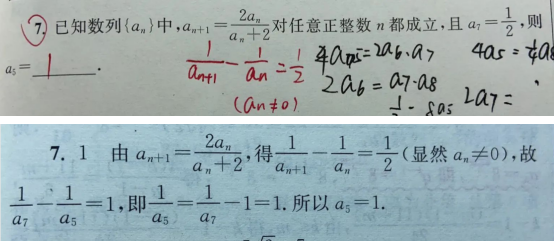 7. 已知数列{aₙ}中,aₙ₊₁=2aₙ/(aₙ+2)对任意正整数 n 都成立,且 a₇=1/2,则
a₅= 1 .
1/aₙ₊₁ - 1/aₙ = 1/2
(aₙ≠0)
2a₆=a₇·a₈
2a₇=
7. 1 由 aₙ₊₁=2aₙ/(aₙ+2),得1/aₙ₊₁-1/aₙ=1/2(显然 aₙ≠0),故
1/a₇-1/a₅=1,即1/a₅=1/a₇-1=1.所以 a₅=1.